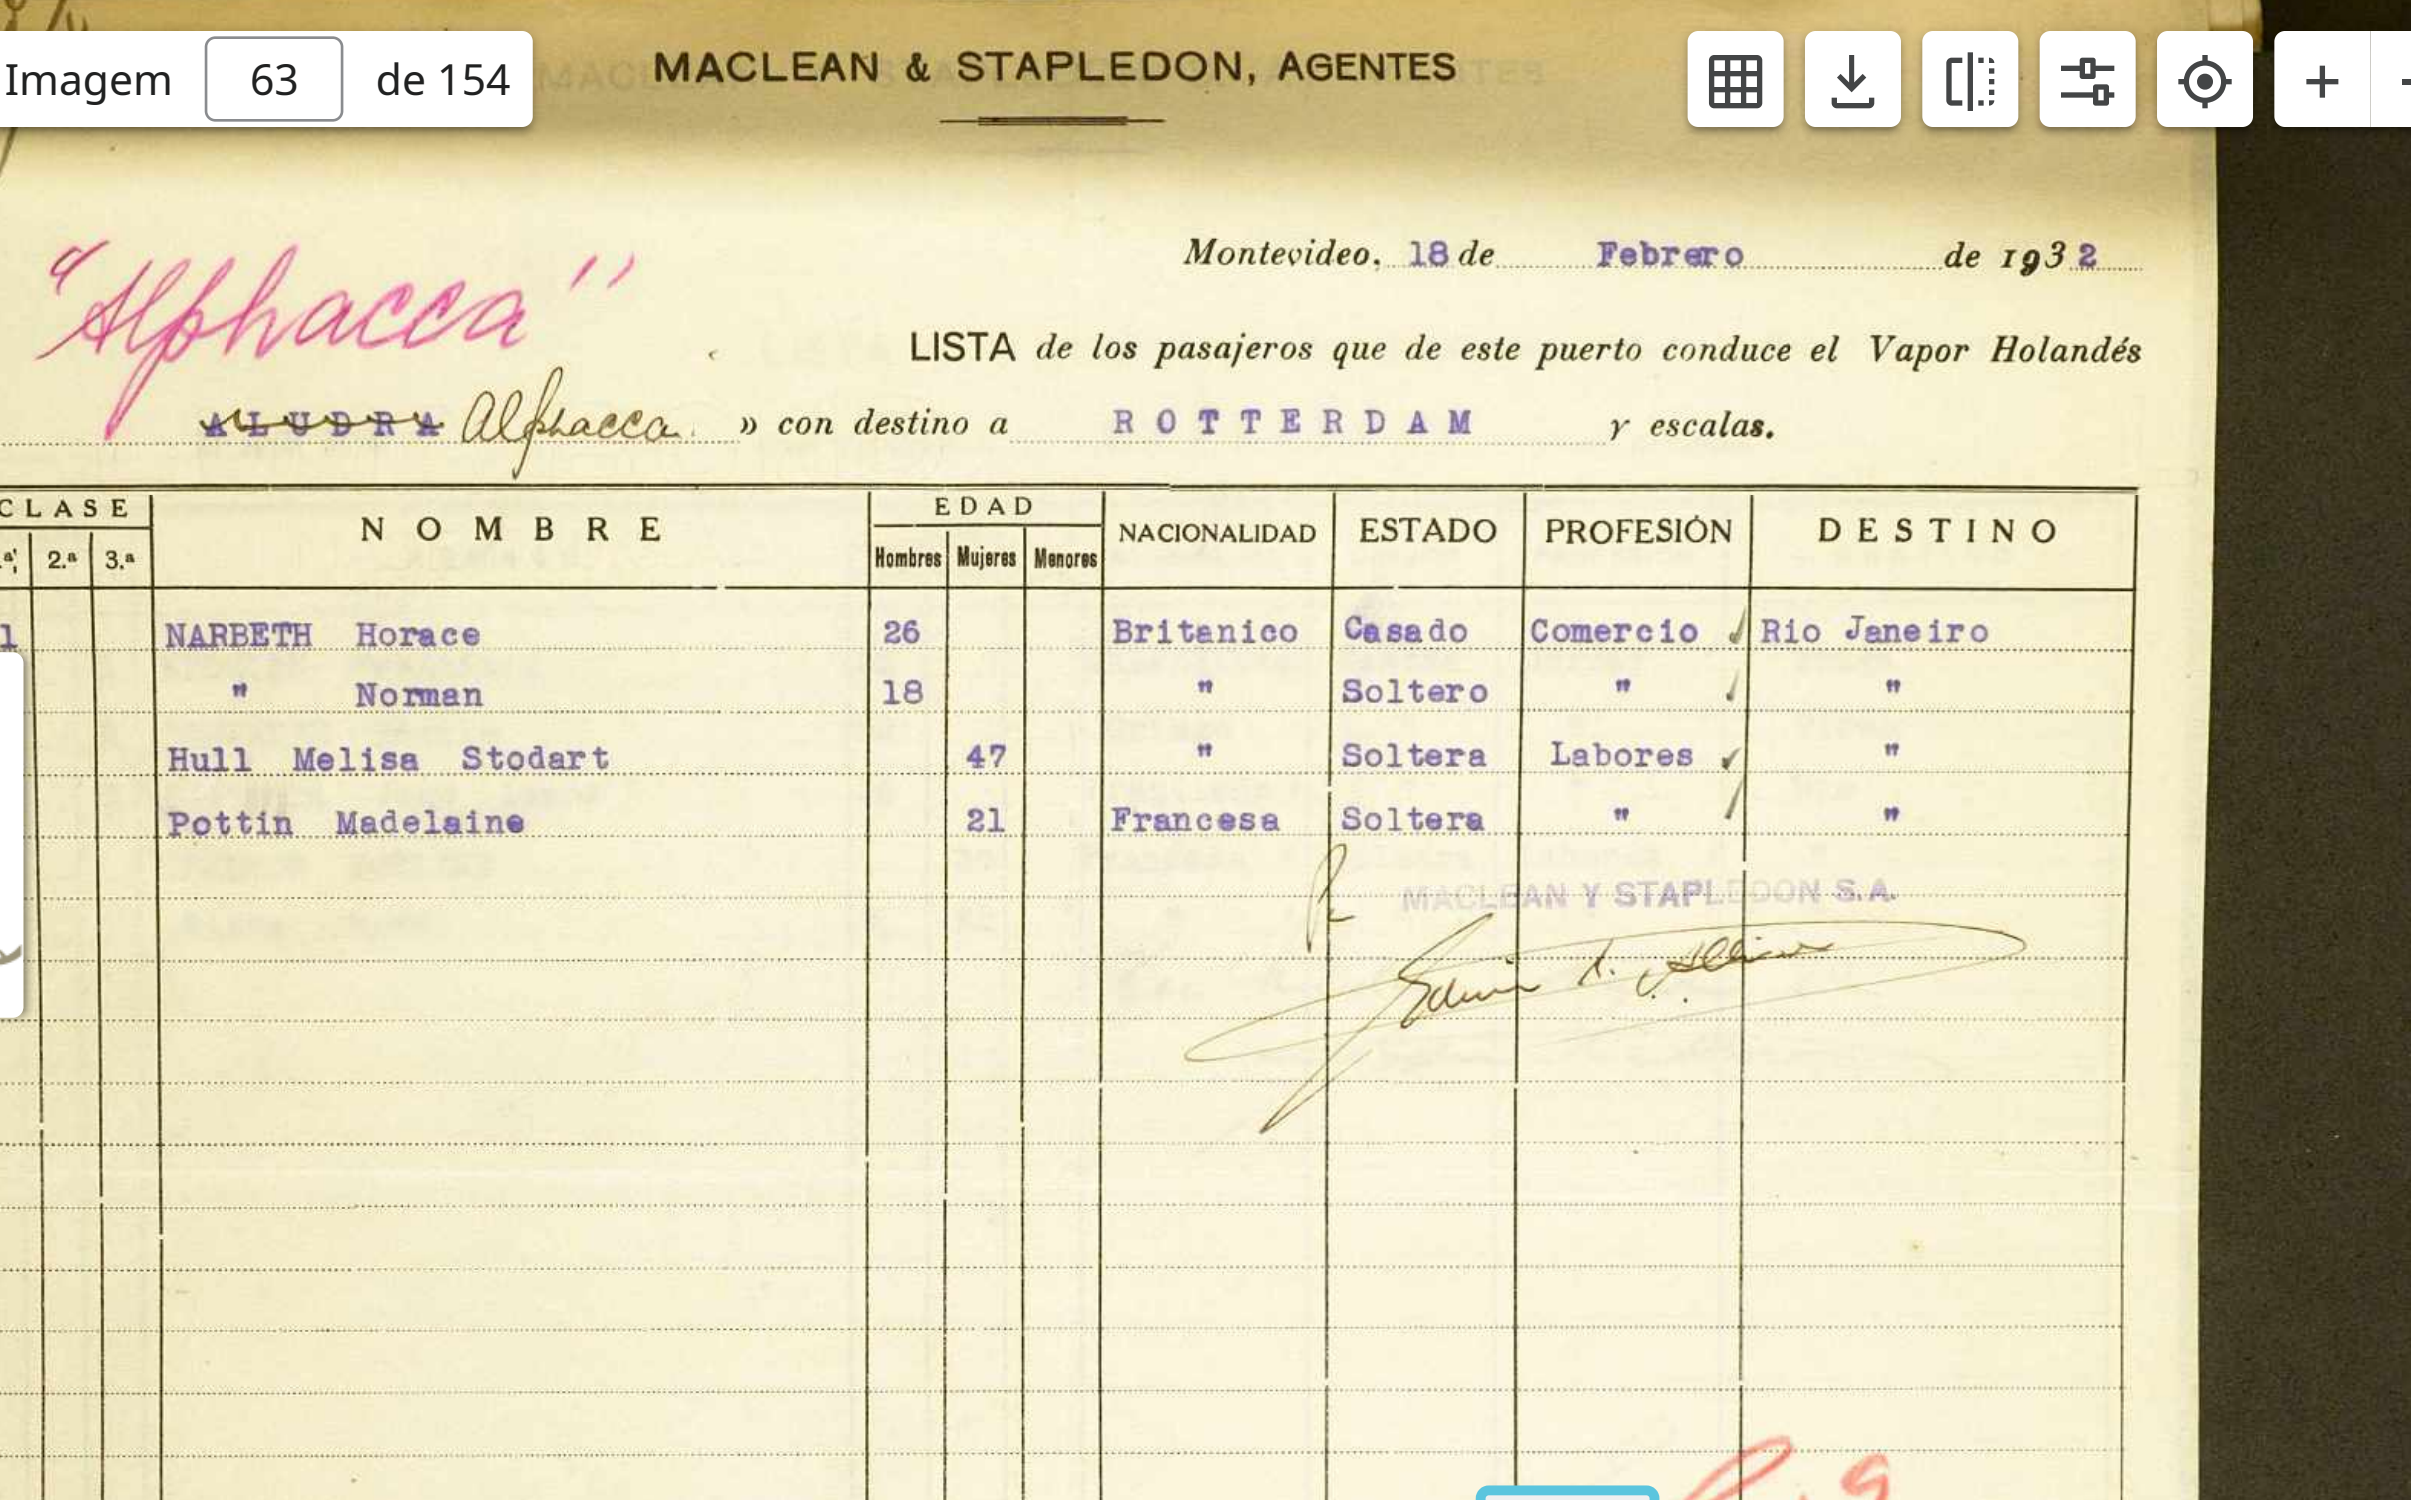 Imagem 63 de 154
MACLEAN & STAPLEDON, AGENTES
"Alphacca"
Montevideo, 18 de Febrero de 1932
LISTA de los pasajeros que de este puerto conduce el Vapor Holandés
ALUDRA Alphacca » con destino a ROTTERDAM y escalas.
CLASE NOMBRE EDAD NACIONALIDAD ESTADO PROFESIÓN DESTINO
2.ª 3.ª Hombres Mujeres Menores
1 NARBETH Horace 26 Britanico Casado Comercio Rio Janeiro
" Norman 18 " Soltero " "
Hull Melisa Stodart 47 " Soltera Labores "
Pottin Madelaine 21 Francesa Soltera " "
MACLEAN Y STAPLEDON S.A.